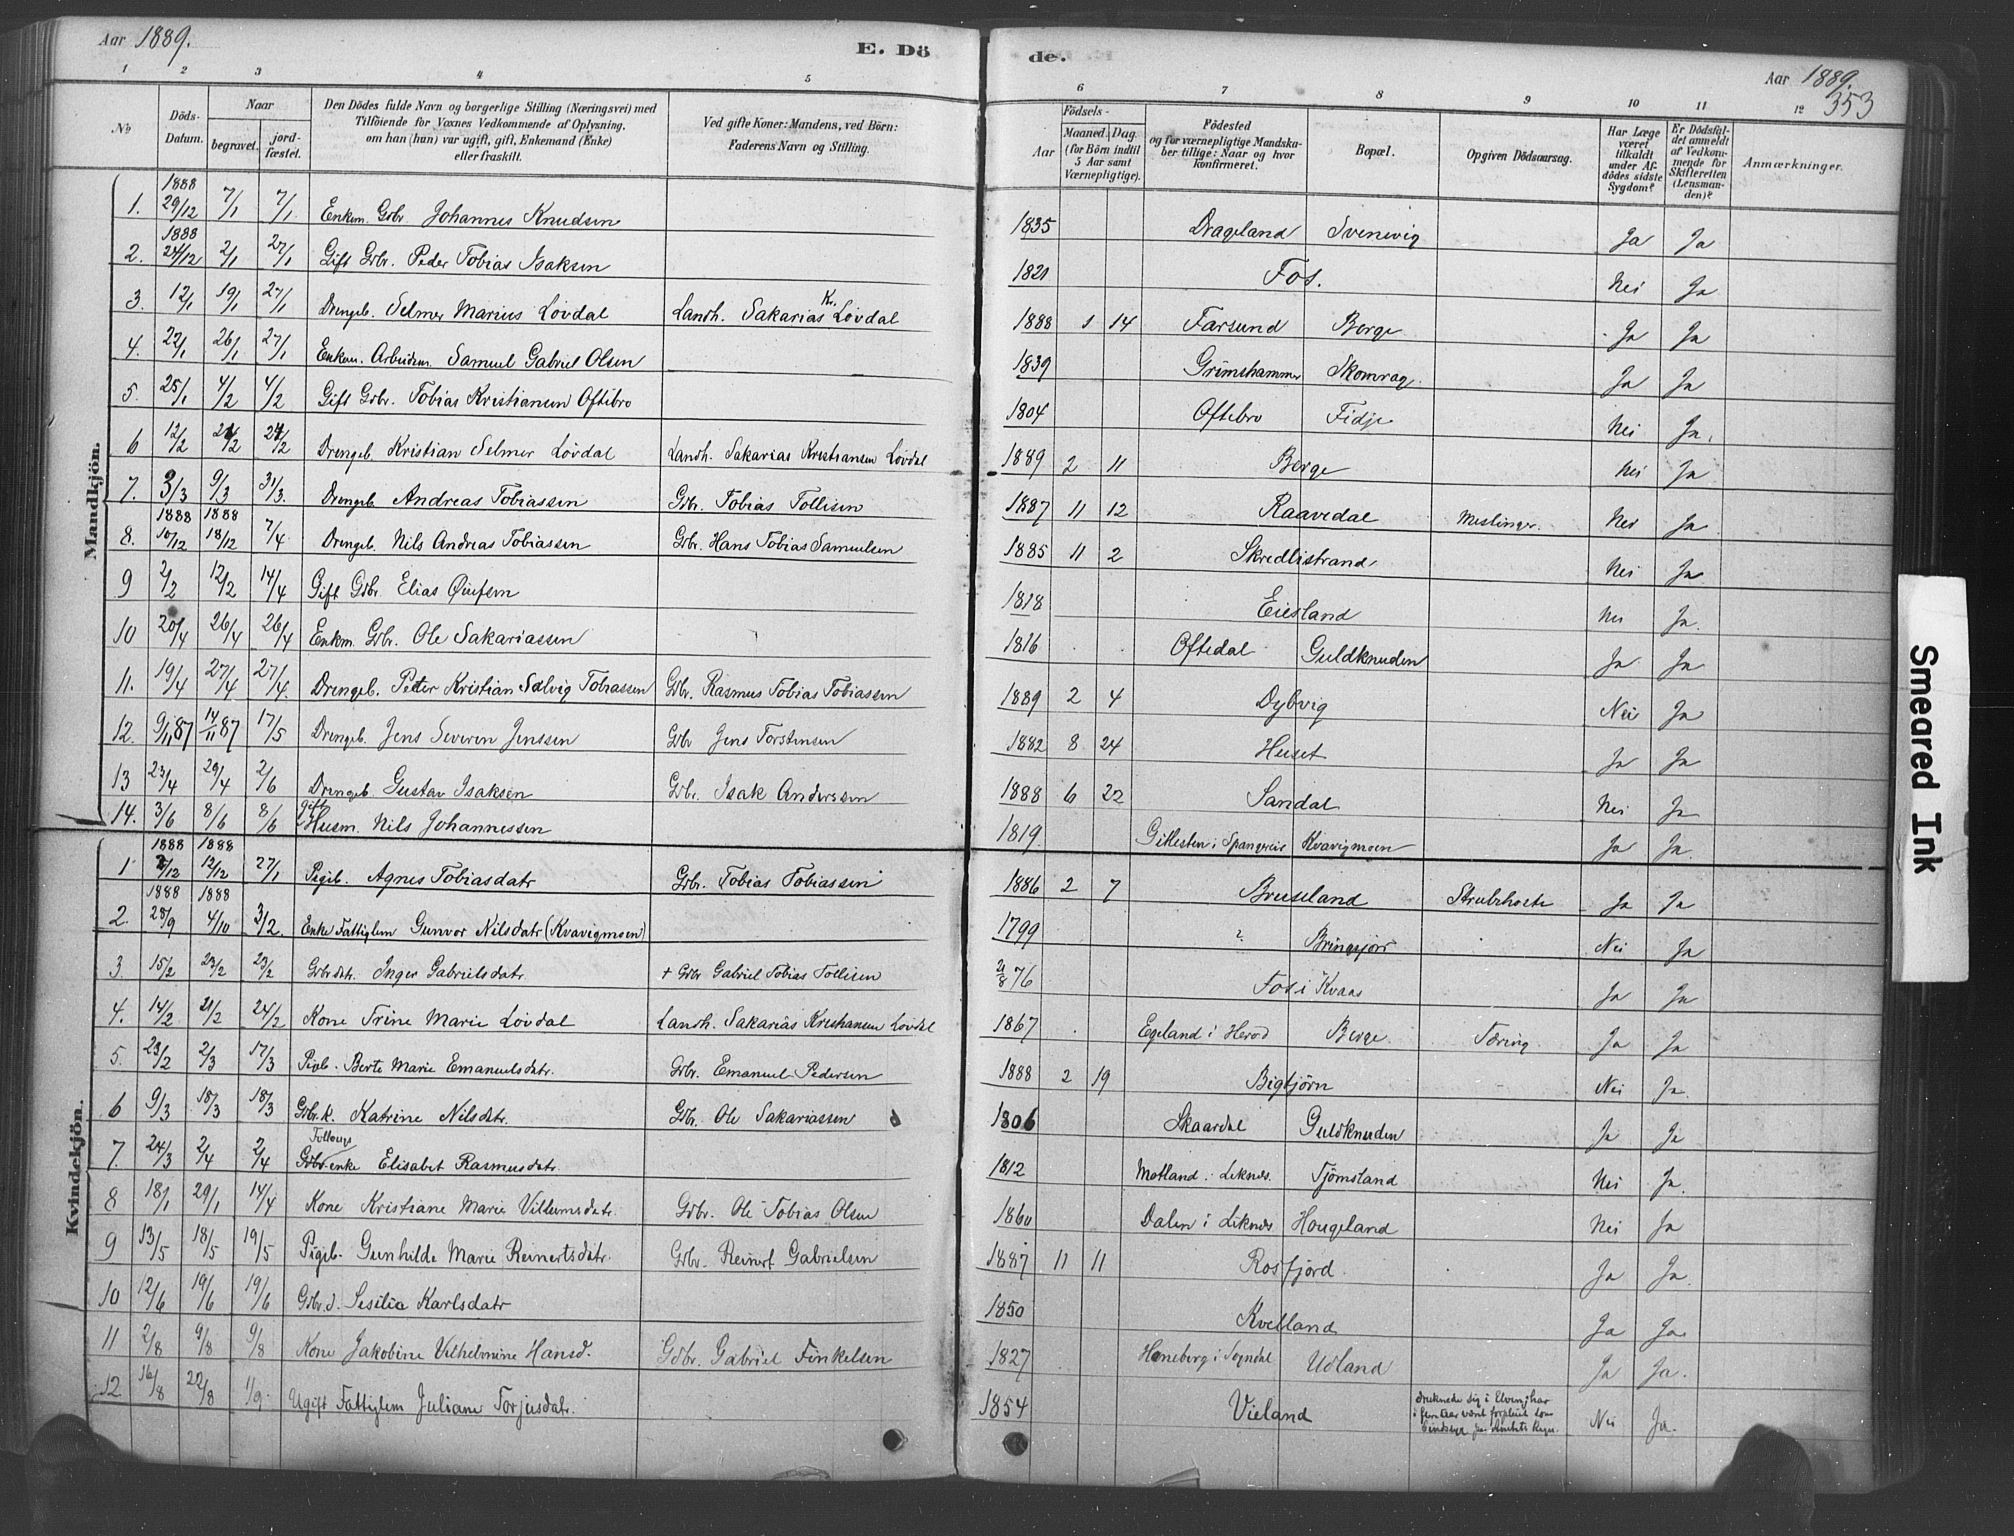 Aar 1889. E. Dö de. Aar 1889.
353
1 2 3 4 5 6 7 8 9 10 11 12
№ Döds-Datum. Naar begravet. jordfæstet. Den Dödes fulde Navn og borgerlige Stilling (Næringsvei) med Tilföiende for Voxnes Vedkommende af Oplysning, om han (hun) var ugift, gift, Enkemand (Enke) eller fraskilt. Ved gifte Koner: Mandens, ved Börn: Faderens Navn og Stilling. Födsels- Aar Maaned. Dag. (for Börn indtil 5 Aar samt Værnepligtige). Födested og for værnepligtige Mandskaber tillige: Naar og hvor konfirmeret. Bopæl. Opgiven Dödsaarsag. Har Læge været tilkaldt under Afdödes sidste Sygdom? Er Dödsfaldet anmeldt af Vedkommende for Skifteretten (Lensmanden)? Anmærkninger.
Mandkjön.
1. 1888 29/12 7/1 7/1 Enkem. Gbr. Johannes Knudsen 1835 Drageland Svenevig Ja Ja
2. 1888 24/12 2/1 27/1 Gift Gbr. Peder Tobias Isaksen 1821 Fos. Nei Ja
3. 12/1 19/1 27/1 Drengeb. Selmer Marius Lövdal Landh. Sakarias Kr. Lövdal 1888 1 14 Farsund Berge Ja Ja
4. 22/1 26/1 27/1 Enkem. Arbeidsm. Samuel Gabriel Olsen 1839 Grimshammer Skomrag Ja Ja
5. 25/1 4/2 4/2 Gift Gbr. Tobias Kristiansen Oftebro 1804 Oftebro Fidje Nei Ja.
6 12/2 24/2 24/2 Drengeb. Kristian Selmer Lövdal Landh. Sakarias Kristiansen Lövdal 1889 2 11 Berge Nei Ja
7. 3/3 9/3 31/3. Drengeb. Andreas Tobiassen Gbr. Tobias Tollisen 1887 11 12 Raavedal Meslinger. Nei Ja
8. 1888 10/12 1888 18/12 7/4 Drengeb. Nils Andreas Tobiassen Gbr. Hans Tobias Samuelsen 1885 11 2 Skredlistrand Nei Ja
9 2/2 12/2 14/4 Gift Gbr. Elias 1818 Eiesland Nei Ja.
10 20/4 26/4 26/4 Enkm. Gbr. Ole Sakariassen 1816 Oftedal Guldknuden Ja Ja
11. 19/4 27/4 27/4. Drengeb. Peder Kristian Solvig Tobiassen Gbr. Rasmus Tobias Tobiassen 1889 2 4 Dybvig Nei Ja
12. 9/11 87 14/11 87 17/5 Drengeb. Jens Severin Jenssen Gbr Jens Torstensen 1882 8 24 Huset Ja Ja
13 23/4 29/4 2/6 Drengeb. Gustav Isaksen Gbr. Isak Anderssen 1888 6 22 Sandal Nei Ja
14. 3/6 8/6 8/6 gift Husm. Nils Johannessen 1819. Gitlesten i Spangereid Kvavigmoen Ja Ja.
Kvindekjön.
1 1888 /12 1888 12/12 27/1 Pigeb. Agnes Tobiasdatr Gbr. Tobias Tobiassen 1886 2 7 Bruseland Strubehoste Ja Ja
2. 1888 28/9 1888 4/10 3/2. Enke Fattiglem Gunvor Nilsdatr (Kvavigmoen) 1799 ? Bringsjör Nei Ja
3. 15/2 23/2 23/2 Gbrdtr. Inger Gabrielsdatr. + Gbr Gabriel Tobias Tollisen 21/8 76 Fos i Kvaas Ja Ja
4. 14/2 21/2 24/2 Kone Trine Marie Lövdal Landh. Sakarias Kristiansen Lövdal 1867 Egeland i Herod Berge Tæring Ja Ja
5. 23/2 2/3 17/3 Pigeb. Berte Marie Emanuelsdatr. Gbr. Emanuel Pedersen 1888 2 19 Bigtjörn Nei Ja
6 9/3 18/3 18/3 Gbr. k. Katrine Nilsdatr. Gbr. Ole Sakariassen 1806 Skaardal Guldknuden Ja Ja
7. 24/3 2/4 2/4 Gbr. enke Elisabet Rasmusdatr. 1812 Motland i Liknes. Tjömsland Nei Ja.
8 18/1 29/1 14/4 Kone Kristiane Marie Villumsdatr. Gbr. Ole Tobias Olsen 1860 Dalen i Liknes Hougeland Nei Ja
9 13/5 18/5 19/5 Pigeb. Gunhilde Marie Reinertsdatr. Gbr. Reinert Gabrielsen 1887 11 11 Rosfjord Ja Ja.
10 12/6 19/6 19/6 Gbr. d. Sesilia Karlsdatr 1850 Kvelland Ja Ja
11 2/8 9/8 9/8 Kone Jakobine Vilhelmine Hansd. Gbr. Gabriel Finkelsen 1827 Honeberg i Sogndal Udland Ja Ja.
12 16/8 22/8 1/9. Ugift Fattiglem Juliane Torjusdatr. 1854 Vieland druknede sig i Elven; har i flere Aar været forpleiet som Sindssyg Nei Ja.
Smeared Ink